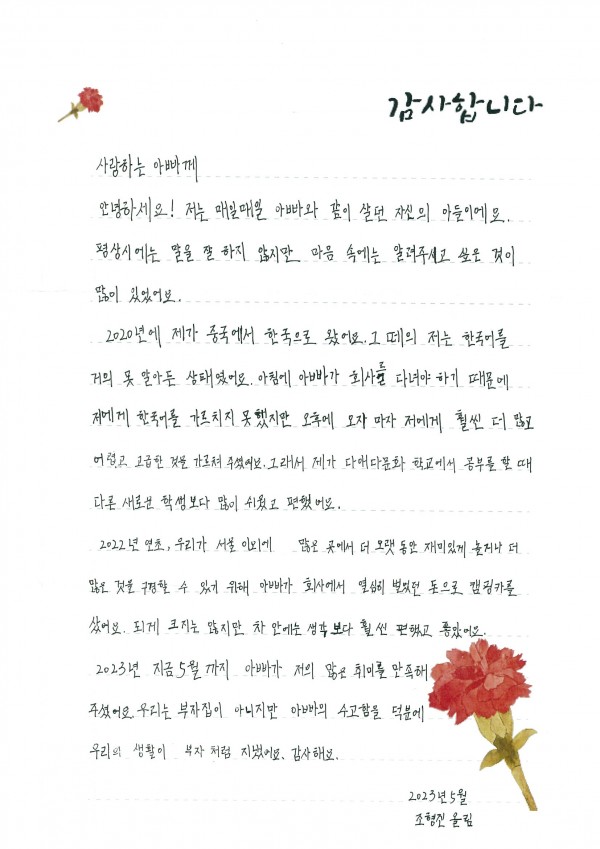 감사합니다
사랑하는 아빠께
안녕하세요! 저는 매일매일 아빠와 같이 살던 자신의 아들이에요.
평상시에는 말을 잘 하지 않지만 마음 속에는 알려주세고 싶은 것이
많이 있었어요.
2020년에 제가 중국에서 한국으로 왔어요. 그 떼의 저는 한국어를
거의 못 알아든 상태였어요. 아침에 아빠가 회사를 다녀야 하기 때문에
저에게 한국어를 가르치지 못했지만 오후에 오자 마자 저에게 훨씬 더 많고
어렵고 고급한 것을 가르쳐 주셨어요. 그래서 제가 다애다문화 학교에서 공부를 할 때
다른 새로운 학생보다 많이 쉬웠고 편했어요.
2022년 연초, 우리가 서울 이외에 많은 곳에서 더 오랫 동안 재미있게 놀거나 더
많은 것을 구경할 수 있기 위해 아빠가 회사에서 열심히 벌었던 돈으로 캠핑카를
샀어요. 되게 크지는 않지만 차 안에는 생각보다 훨씬 편했고 좋았어요.
2023년 지금 5월 까지 아빠가 저의 많은 취미를 만족해
주셨어요. 우리는 부자집이 아니지만 아빠의 수고함을 덕분에
우리의 생활이 부자 처럼 지냈어요. 감사해요.
2023년 5월
조형진 올림